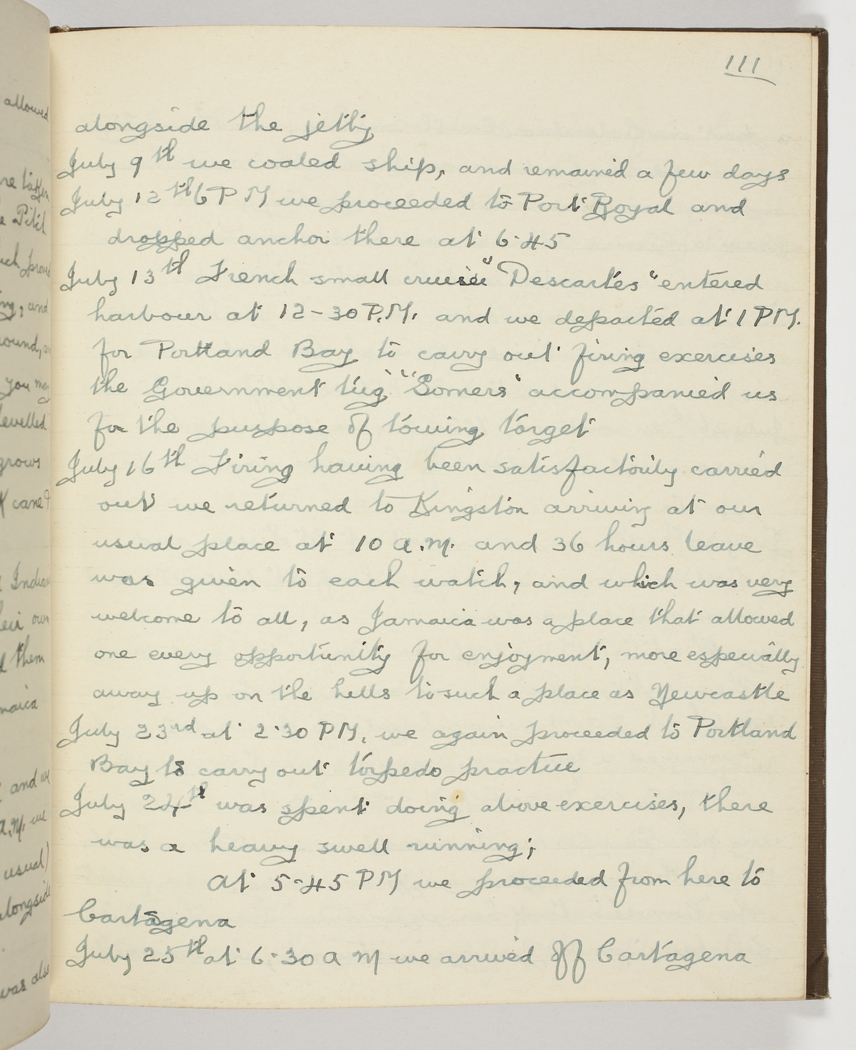 111
alongside the jetty
July 9th we coaled ship, and remained a few days
July 12th 6 PM we proceeded to Port Royal and
dropped anchor there at 6-45
July 13th French small cruiser "Descartes" entered
harbour at 12-30 P.M. and we departed at 1 PM.
for Portland Bay to carry out firing exercises
the Government tug "Somers" accompanied us
for the purpose of towing target
July 16th Firing having been satisfactorily carried
out we returned to Kingston arriving at our
usual place at 10 a.m. and 36 hours leave
was given to each watch, and which was very
welcome to all, as Jamaica was a place that allowed
one every opportunity for enjoyment, more especially
away up on the hills to such a place as Newcastle
July 23rd at 2.30 PM. we again proceeded to Portland
Bay to carry out torpedo practice
July 24th was spent doing above exercises, there
was a heavy swell running;
At 5-45 PM we proceeded from here to
Cartagena
July 25th at 6-30 a m we arrived off Cartagena